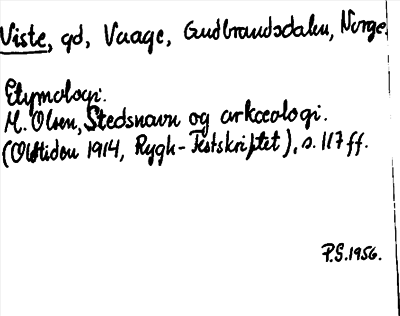 Viste, gd, Vaage, Gudbrandsdalen, Norge.
Etymologi.
M. Olsen, Stedsnavn og arkæologi.
(Oldtiden 1914, Rygh-Festskriftet), s. 117 ff.
P.S. 1956.